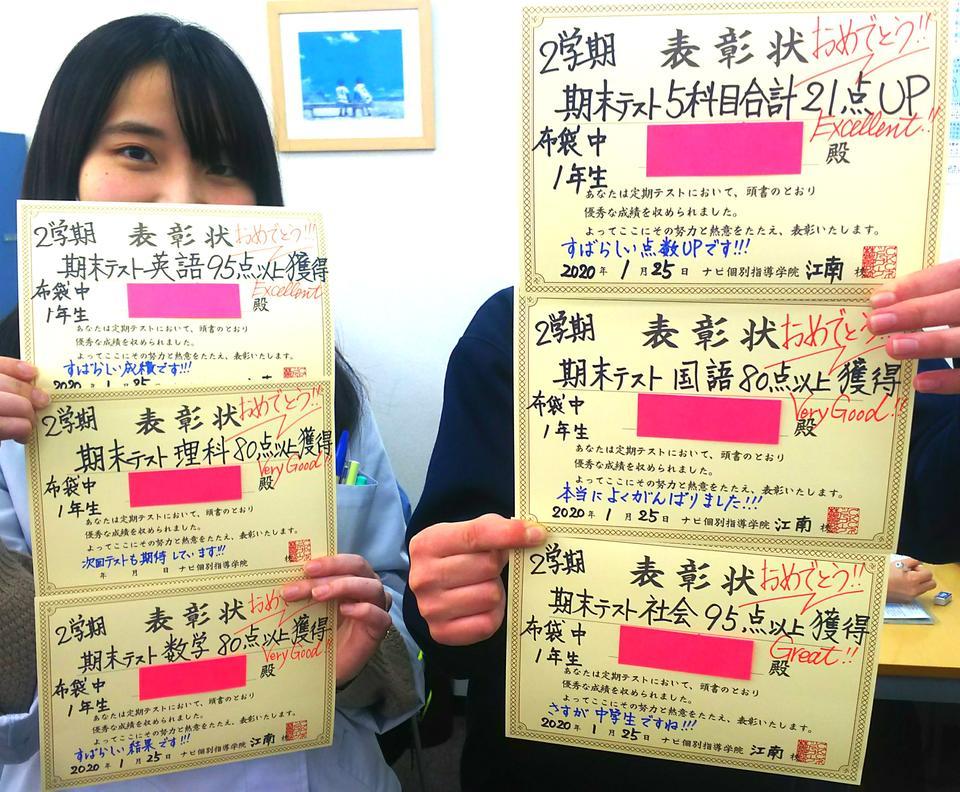 2学期 表彰状 おめでとう!!
期末テスト英語95点以上獲得
Excellent
布袋中
1年生 殿
あなたは定期テストにおいて、頭書のとおり
優秀な成績を収められました。
よってここにその努力と熱意をたたえ、表彰いたします。
すばらしい成績です!!!
2020 1 25
2学期 表彰状 おめでとう!!
期末テスト理科80点以上獲得
Very Good!!
布袋中
1年生 殿
あなたは定期テストにおいて、頭書のとおり
優秀な成績を収められました。
よってここにその努力と熱意をたたえ、表彰いたします。
次回テストも期待しています!!!
年 月 日 ナビ個別指導学院
2学期 表彰状 おめ
期末テスト数学80点以上獲得
Very Good!!
布袋中
1年生 殿
あなたは定期テストにおいて、頭書のとおり
優秀な成績を収められました。
よってここにその努力と熱意をたたえ、表彰いたします。
すばらしい結果です!!!
2020年 1月25日 ナビ個別指導学院 江南 校
2学期 表彰状 おめでとう!!
期末テスト5科目合計21点UP
Excellent!!
布袋中
1年生 殿
あなたは定期テストにおいて、頭書のとおり
優秀な成績を収められました。
よってここにその努力と熱意をたたえ、表彰いたします。
すばらしい点数UPです!!!
2020年 1月25日 ナビ個別指導学院 江南 校
2学期 表彰状 おめでとう
期末テスト国語80点以上獲得
Very Good!!
布袋中
1年生 殿
あなたは定期テストにおいて、頭書のとおり
優秀な成績を収められました。
よってここにその努力と熱意をたたえ、表彰いたします。
本当によくがんばりました!!!
2020年 1月25日 ナビ個別指導学院 江南 校
2学期 表彰状 おめでとう!!
期末テスト社会95点以上獲得
Great!!
布袋中
1年生 殿
あなたは定期テストにおいて、頭書のとおり
優秀な成績を収められました。
よってここにその努力と熱意をたたえ、表彰いたします。
さすが中学生ですね!!!
2020年 1月25日 ナビ個別指導学院 江南 校